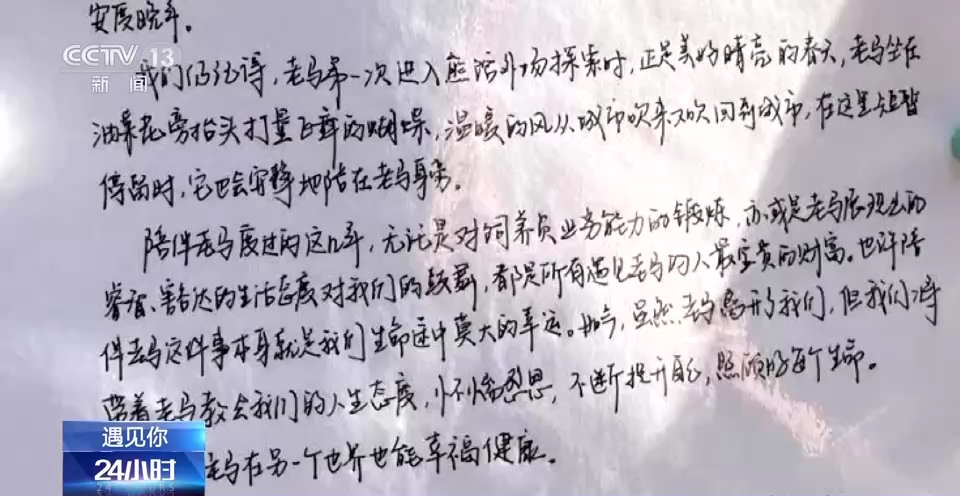 安度晚年。
CCTV 13
新闻
我们仍记得，老马第一次进入 外场探索时，正是美好晴亮的春天，老马坐在
油菜花旁抬头打量飞舞的蝴蝶，温暖的风从城市吹来又吹回到城市，在这里短暂
停留时，它也会安静地陪在老马身旁。
陪伴老马度过的这几年，无论是对饲养员业务能力的锻炼，亦或是老马展现出的
睿智、豁达的生活态度对我们的鼓舞，都是所有遇见老马的人最宝贵的财富。也许陪
伴老马这件事本身就是我们生命途中莫大的幸运。如今，虽然老马离开了我们，但我们将
带着老马教会我们的人生态度，怀揣思，不断提升自我，照顾好每个生命。
老马在另一个世界也能幸福健康。
遇见你
24小时
24 HOURS